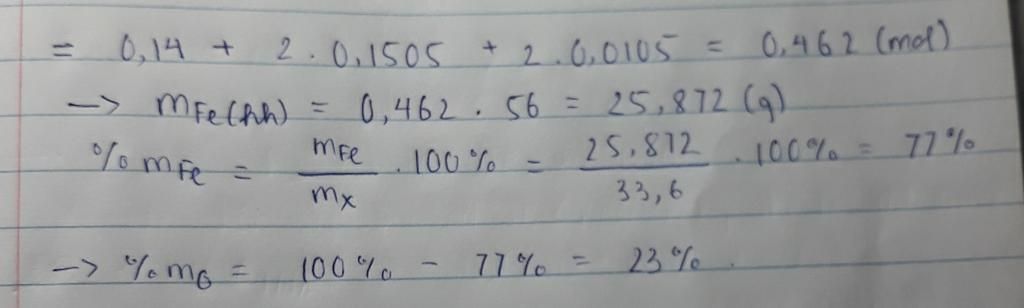 = 0,14 + 2 . 0,1505 + 2 . 0,0105 = 0,462 (mol)
-> mFe(hh) = 0,462 . 56 = 25,872 (g)
% mFe = mFe / mX . 100% = 25,872 / 33,6 . 100% = 77%
-> % mO = 100% - 77% = 23%.